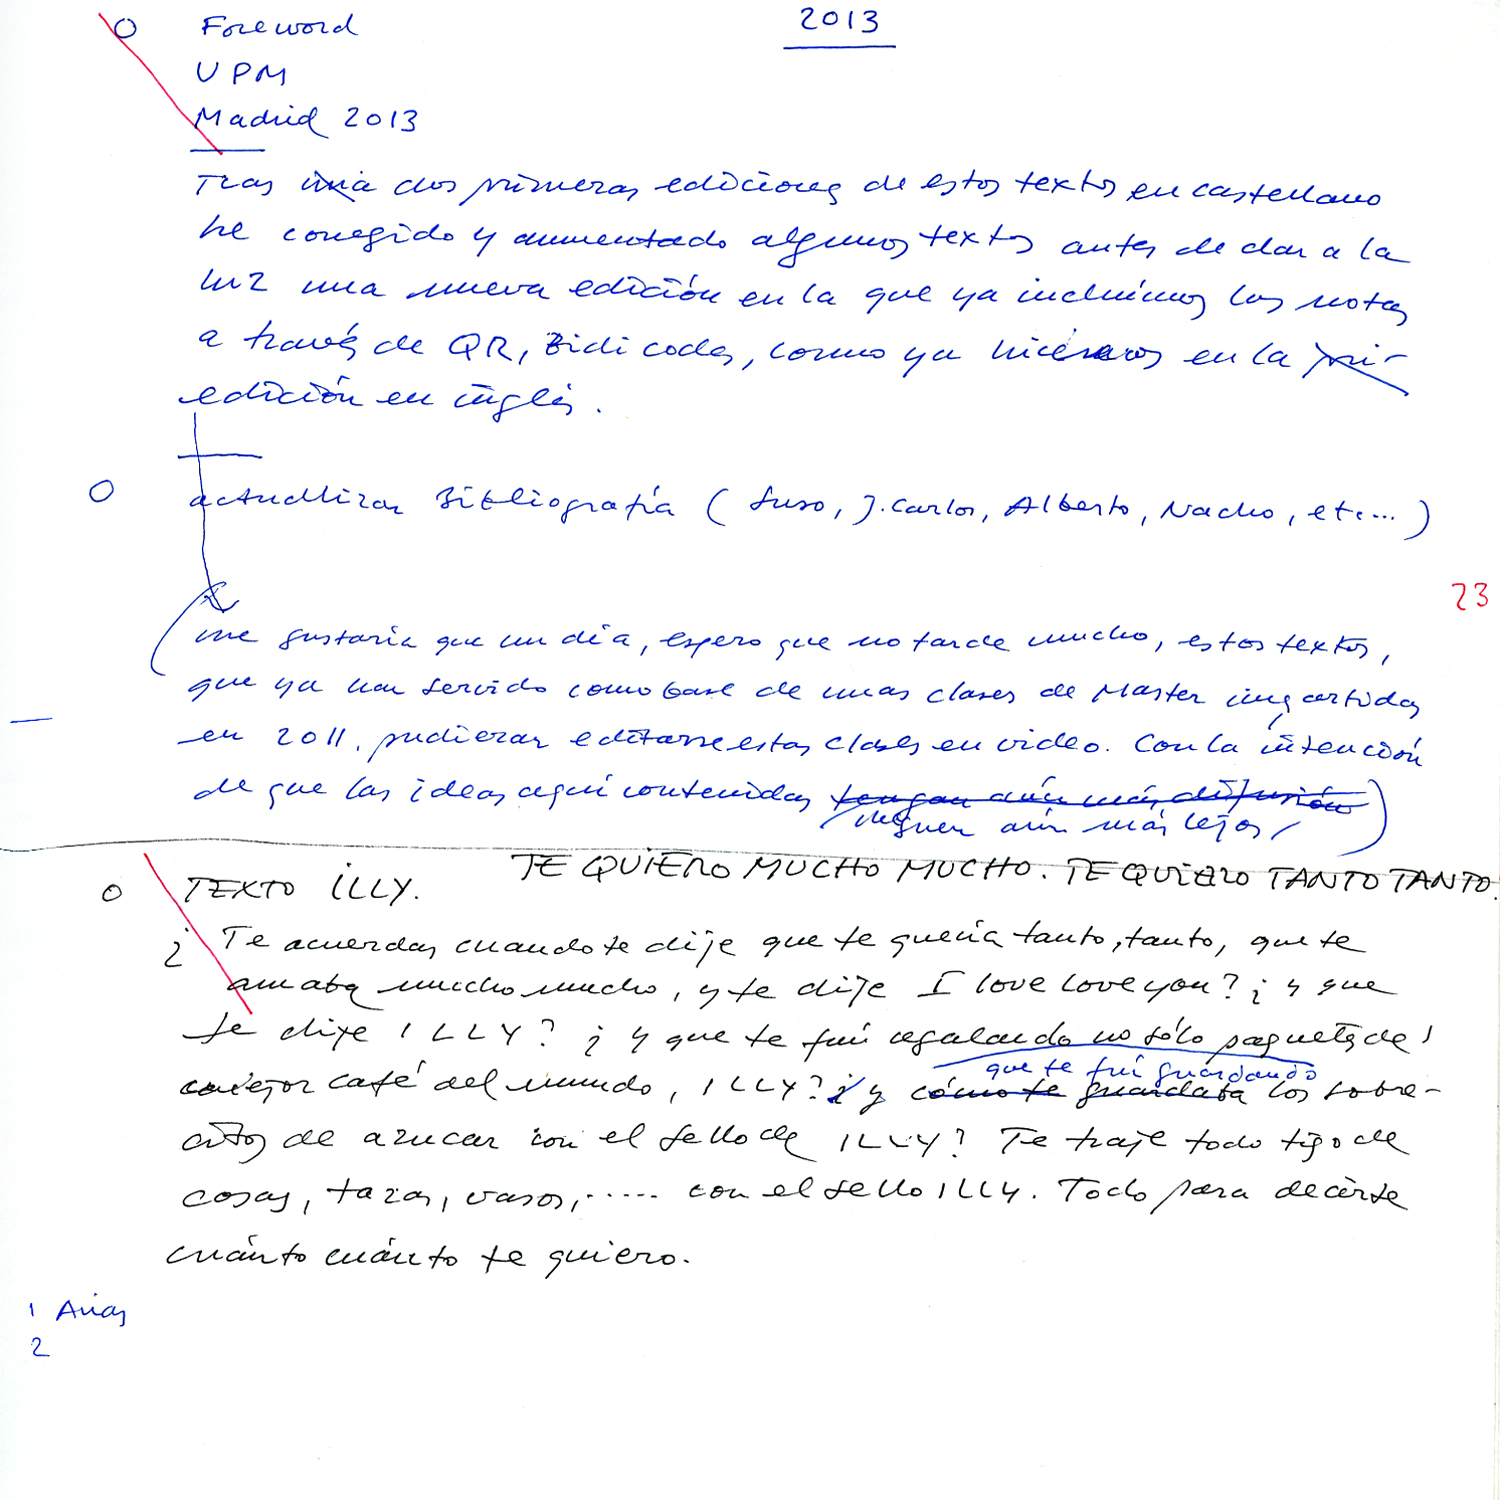 2013
O Foreword
UPM
Madrid 2013
Tras una dos primeras ediciones de estos textos en castellano
he corregido y aumentado algunos textos antes de dar a la
luz una nueva edición en la que ya incluimos las notas
a través de QR, Bidi codes, como ya hicimos en la pri-
edición en inglés.
O actualizar Bibliografía (Suso, J. Carlos, Alberto, Nacho, etc...)
23
(me gustaría que un día, espero que no tarde mucho, estos textos,
que ya han servido como base de unas clases de Master impartidas
en 2011, pudieran editarse estas clases en video. Con la intención
de que las ideas aquí contenidas tengan aún más difusión)
lleguen aún más lejos
TE QUIERO MUCHO MUCHO. TE QUIERO TANTO TANTO.
O TEXTO ILLY.
¿Te acuerdas cuando te dije que te quería tanto, tanto, que te
amaba mucho mucho, y te dije I love love you? ¿y que
te dije ILLY? ¿y que te fuí regalando no sólo paquetes del
mejor café del mundo, ILLY? ¿y cómo te guardaba los sobre-
que te fuí guardando
citos de azucar con el sello de ILLY? Te traje todo tipo de
cosas, tazas, vasos,..... con el sello ILLY. Todo para decirte
cuánto cuánto te quiero.
1 Arias
2